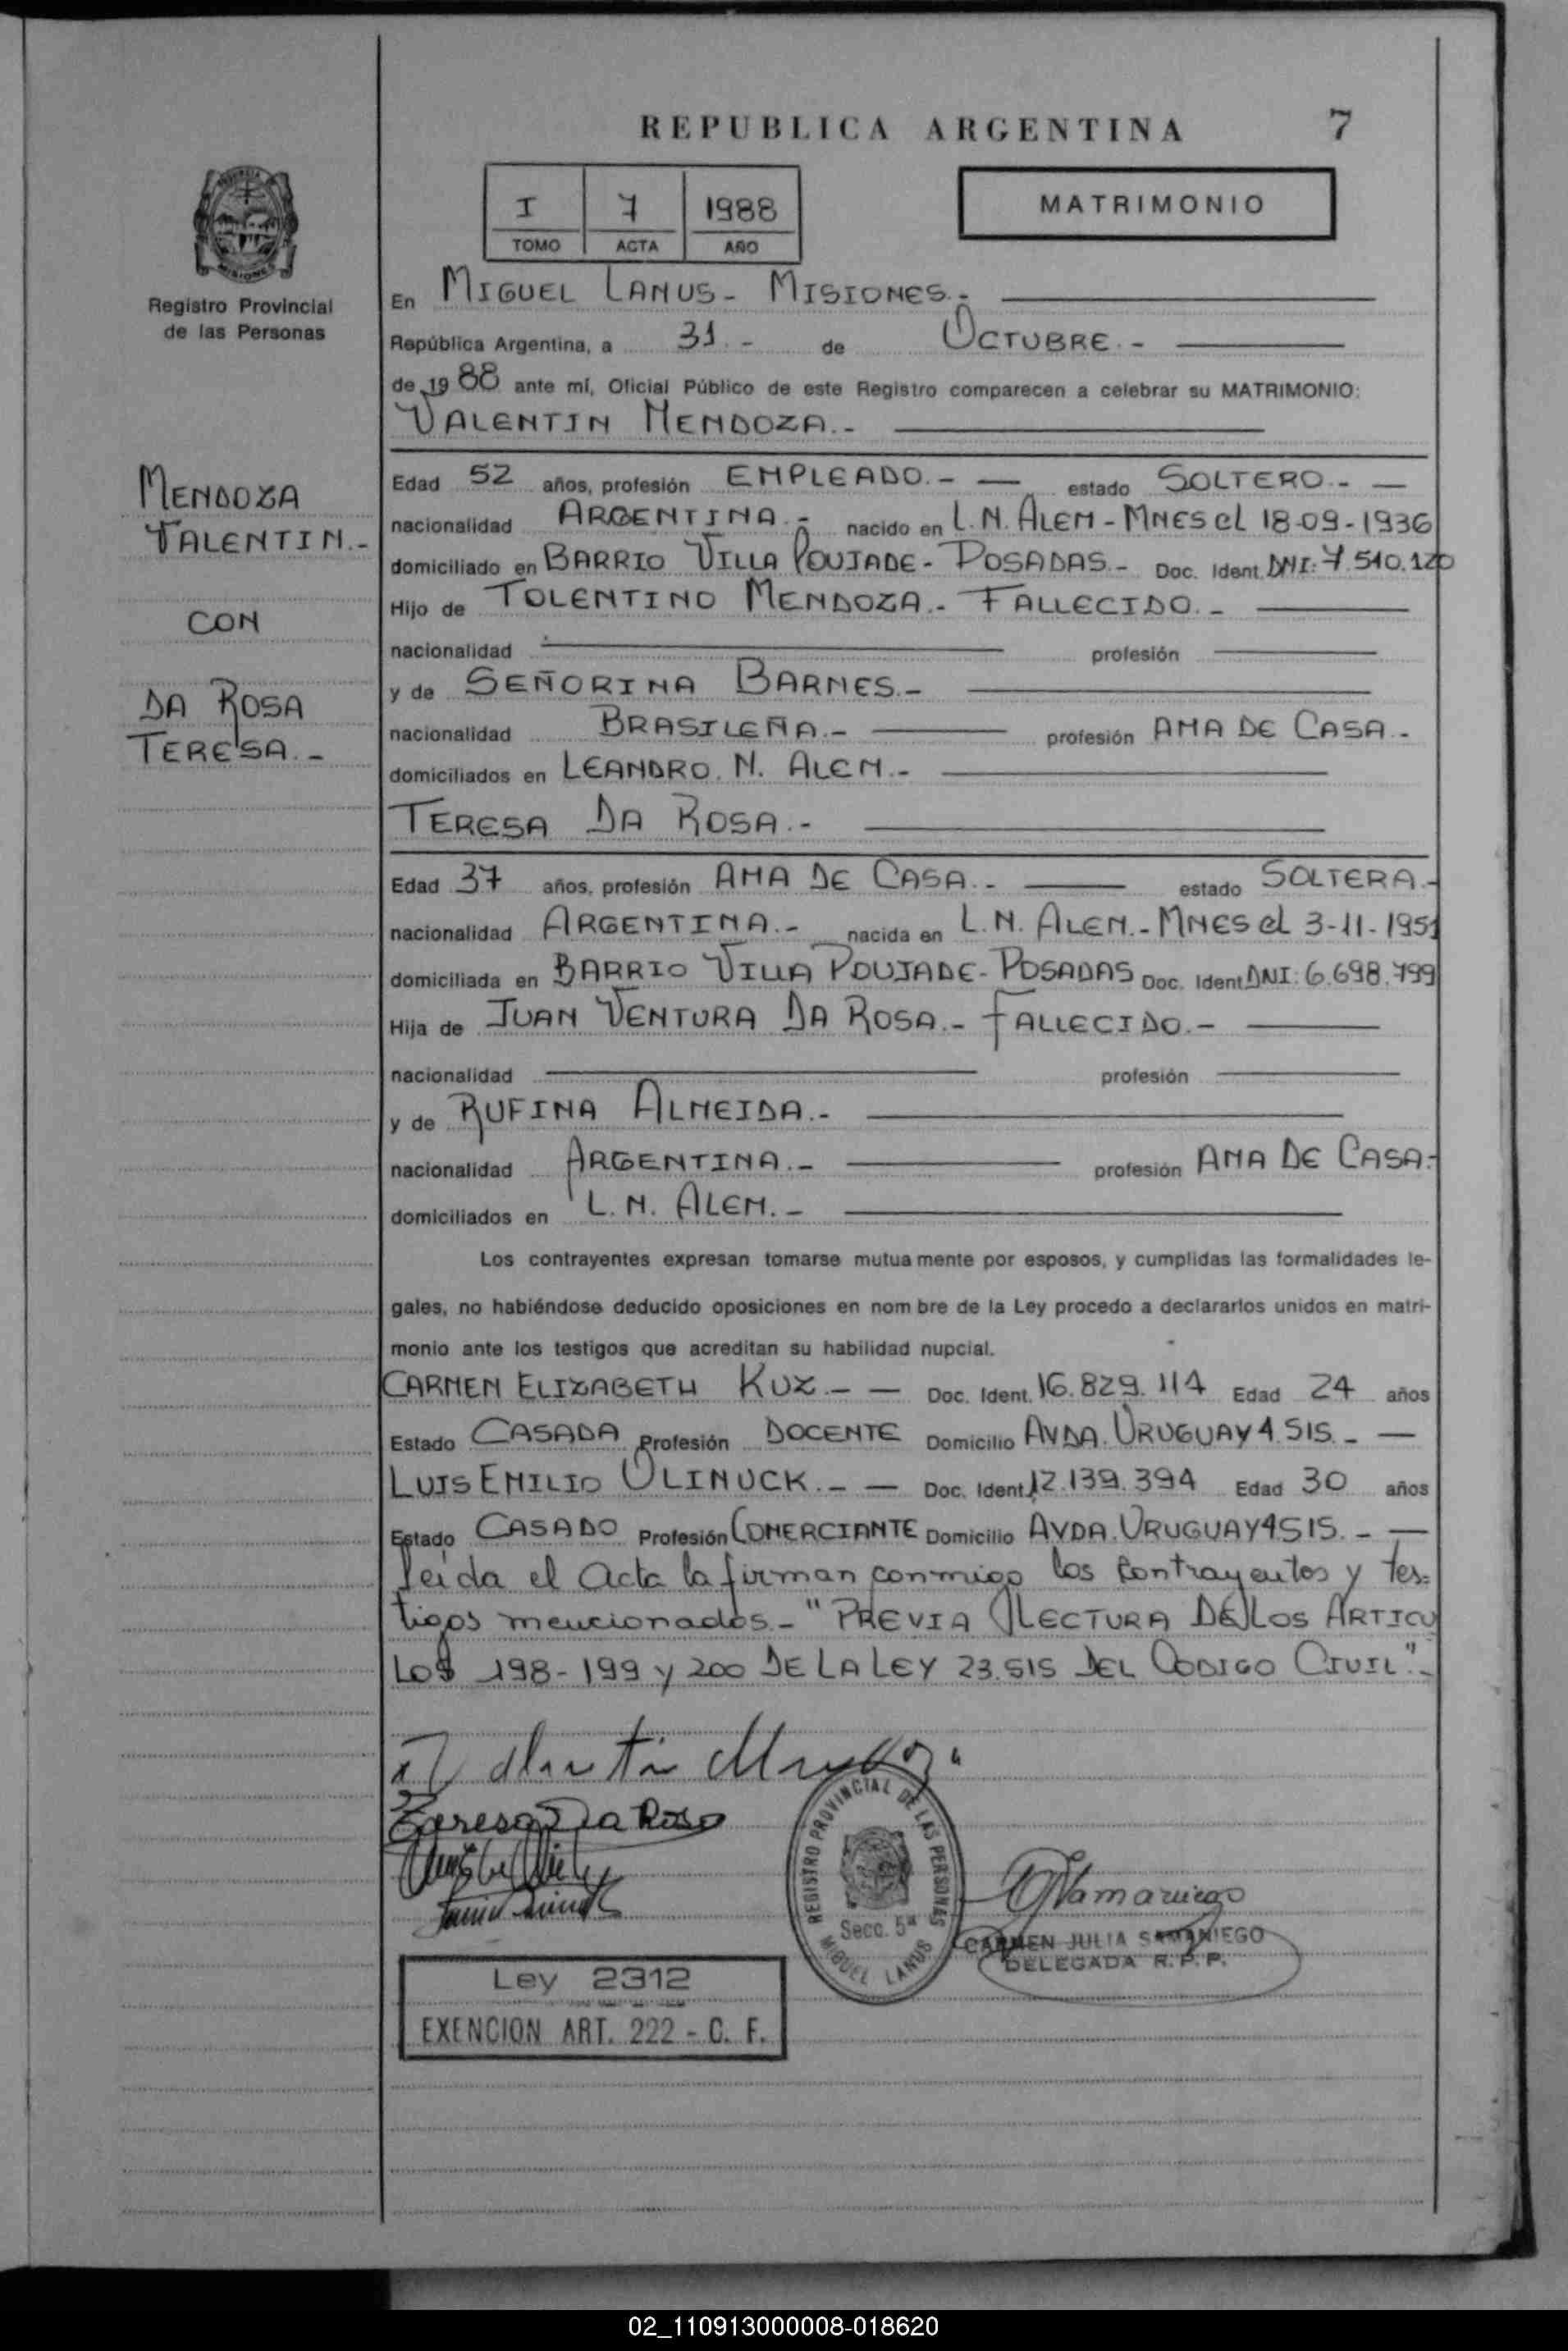 REPUBLICA ARGENTINA 7
I 7 1988
TOMO ACTA AÑO
MATRIMONIO
PROVINCIA DE MISIONES
Registro Provincial
de las Personas
MENDOZA
VALENTIN.-
CON
DA ROSA
TERESA.-
En MIGUEL LANUS- MISIONES.-
República Argentina, a 31.- de OCTUBRE.-
de 1988 ante mí, Oficial Público de este Registro comparecen a celebrar su MATRIMONIO:
VALENTIN MENDOZA.-
Edad 52 años, profesión EMPLEADO.- estado SOLTERO.-
nacionalidad ARGENTINA.- nacido en L.N. ALEM-MNES el 18-09-1936
domiciliado en BARRIO VILLA POUJADE- POSADAS.- Doc. Ident. DNI: 7.510.120
Hijo de TOLENTINO MENDOZA.- FALLECIDO.-
nacionalidad profesión
y de SEÑORINA BARNES.-
nacionalidad BRASILEÑA.- profesión AMA DE CASA.-
domiciliados en LEANDRO. N. ALEM.-
TERESA DA ROSA.-
Edad 37 años, profesión AMA DE CASA.- estado SOLTERA.-
nacionalidad ARGENTINA.- nacida en L.N. ALEM.-MNES el 3-11-1951
domiciliada en BARRIO VILLA POUJADE- POSADAS Doc. Ident DNI: 6.698.799
Hija de JUAN VENTURA DA ROSA.- FALLECIDO.-
nacionalidad profesión
y de RUFINA ALMEIDA.-
nacionalidad ARGENTINA.- profesión AMA DE CASA.-
domiciliados en L.N. ALEM.-
Los contrayentes expresan tomarse mutuamente por esposos, y cumplidas las formalidades le-
gales, no habiéndose deducido oposiciones en nombre de la Ley procedo a declararlos unidos en matri-
monio ante los testigos que acreditan su habilidad nupcial.
CARMEN ELIZABETH KUZ.- Doc. Ident. 16.829.114 Edad 24 años
Estado CASADA Profesión DOCENTE Domicilio AVDA. URUGUAY 4.515.-
LUIS EMILIO OLINUCK.- Doc. Ident. 12.139.394 Edad 30 años
Estado CASADO Profesión COMERCIANTE Domicilio AVDA. URUGUAY 4515.-
leída el Acta la firman conmigo los contrayentes y tes=
tigos mencionados.- "PREVIA LECTURA DE LOS ARTICU
LOS 198-199 y 200 DE LA LEY 23.515 DEL CODIGO CIVIL".-
Valentin Mendoza
Teresa Da Rosa
REGISTRO PROVINCIAL DE LAS PERSONAS
Secc. 5ª
MIGUEL LANUS
Samaniego
CARMEN JULIA SAMANIEGO
DELEGADA R. P. P.
Ley 2312
EXENCION ART. 222 - C. F.
02_110913000008-018620